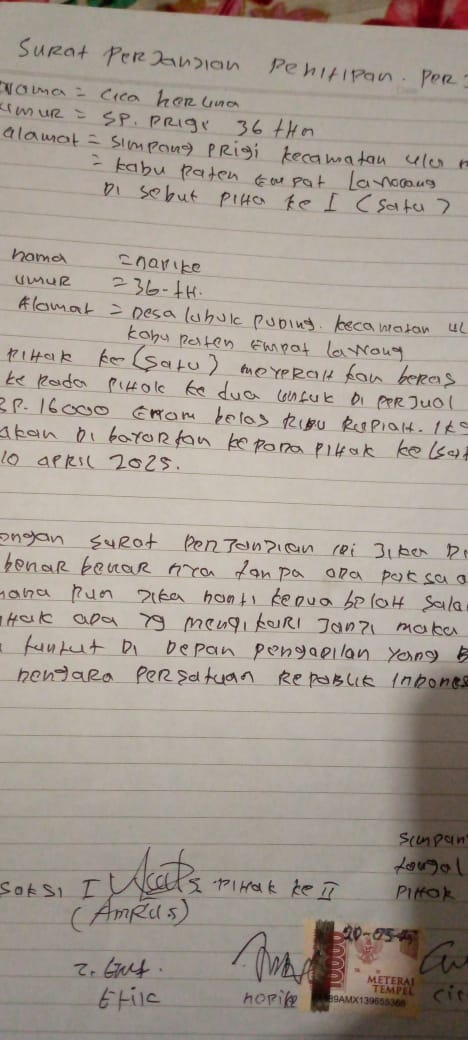 Surat Perjanjian Penitipan. Per
Nama = cica herlina
umur = SP. PRigi 36 tHn
alamat = simpang PRigi kecamatan ulu m
= kabu paten Empat Lawang
Di sebut PiHa ke I (satu)
nama = narike
umuR = 36-tH.
Alamat = Desa lubuk Puding. kecamatan ul
kabu paten Empat lawang
PiHak ke (satu) meyeraH kan beras
ke Pada PiHak ke dua untuk Di PerJual
RP. 16000 Enam belas Ribu RupiaH. 1 kg
akan Di bayarkan kepada piHak ke (sat
10 APRIL 2025.
engan surat PerJanJian ini Jika D
benar benar nya tanpa ada paksa a
mana Pun Jika nanti kedua belaH Sala
iHak ada yg mengikari Janji maka
tuntut Di Depan Pengadilan yang B
nengara Persatuan Republik Indones
simpan
tanggal
saksi I PiHak ke II PiHak
(Amrus)
2.
noripe cic
20-05-
10000
METERAI
TEMPEL
89AMX139655366